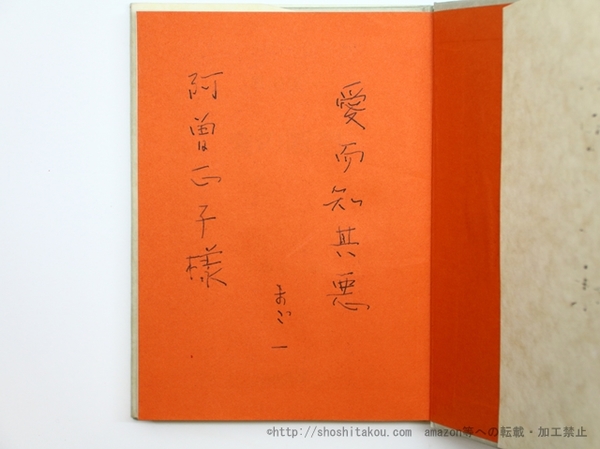 愛而知其悪
阿曽正子様
©http://shoshitakou.com amazon等への転載・加工禁止